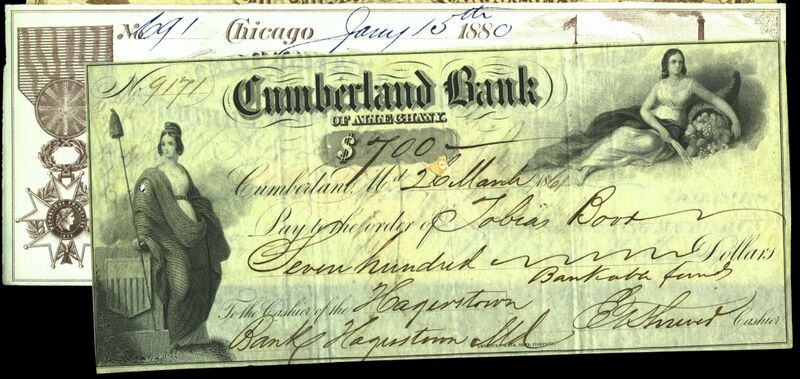 No. 691 Chicago Jany 15th 1880
No 9171
Cumberland Bank
OF ALLEGHANY.
$ 700
Cumberland, Md 26 March 1861
Pay to the order of Tobias
Seven hundred Dollars
Bankable funds
To the Cashier of the Hagerstown
Bank Hagerstown Md Cashier